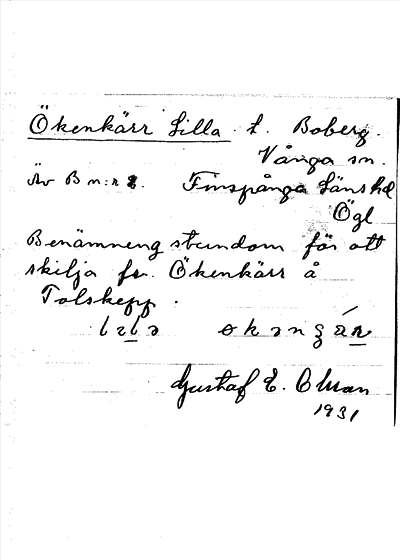 Ökenkärr Lilla t. Boberg.
Vånga sn.
Äv B n:r 2. Finspånga Läns hd
Ögl
Benämneng stundom för att
skilja fr. Ökenkärr å
Tolskepp.
Gustaf E. Olman
1931